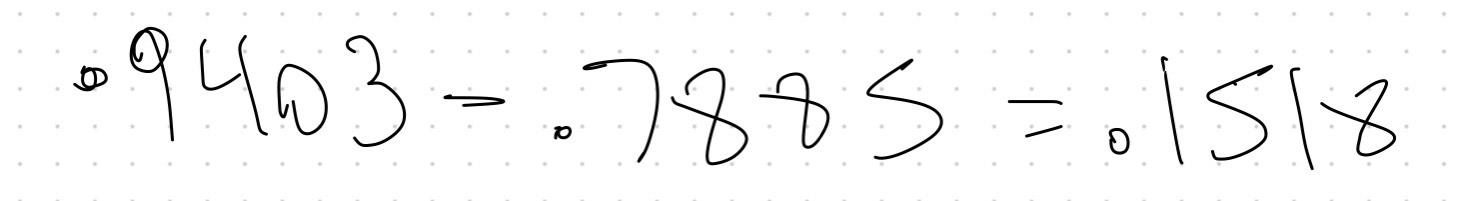 .9403 - .7885 = .1518